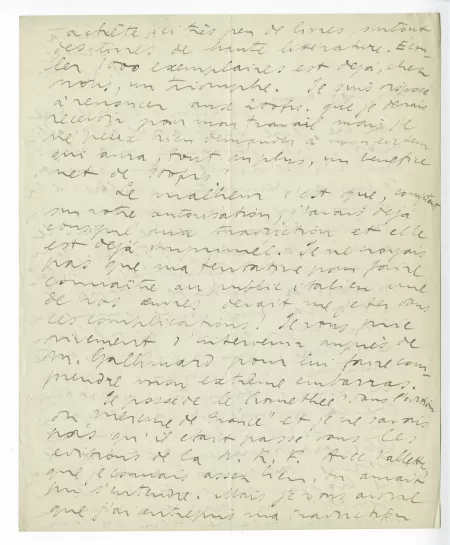 achète ici très peu de livres, surtout
des livres de haute littérature. Ecou-
ler 1000 exemplaires est déjà, chez
nous, un triomphe. Je suis disposé
à renoncer aux 200frs. que je devais
recevoir pour mon travail mais je
ne peux rien demander à mon éditeur
qui aura, tout au plus, un bénéfice
net de 300frs!
Le malheur c'est que, comptant
sur votre autorisation, j'avais déjà
ma traduction et elle
est déjà imprimée. Je ne croyais
pas que ma tentative pour faire
connaître au public italien une
de vos œuvres devait me jeter dans
ces complications! Je vous prie
vivement d'intervenir auprès de
M. Gallimard pour lui faire com-
prendre mon extrême embarras.
Je possède le Prométhée dans l'édition
du Mercure de France et je ne savais
pas qu'il était passé sous les
éditions de la N. R. F. Avec Vallette,
que je connais assez bien, on aurait
pu s'entendre. Mais je vous avoue
que j'ai entrepris ma traduction